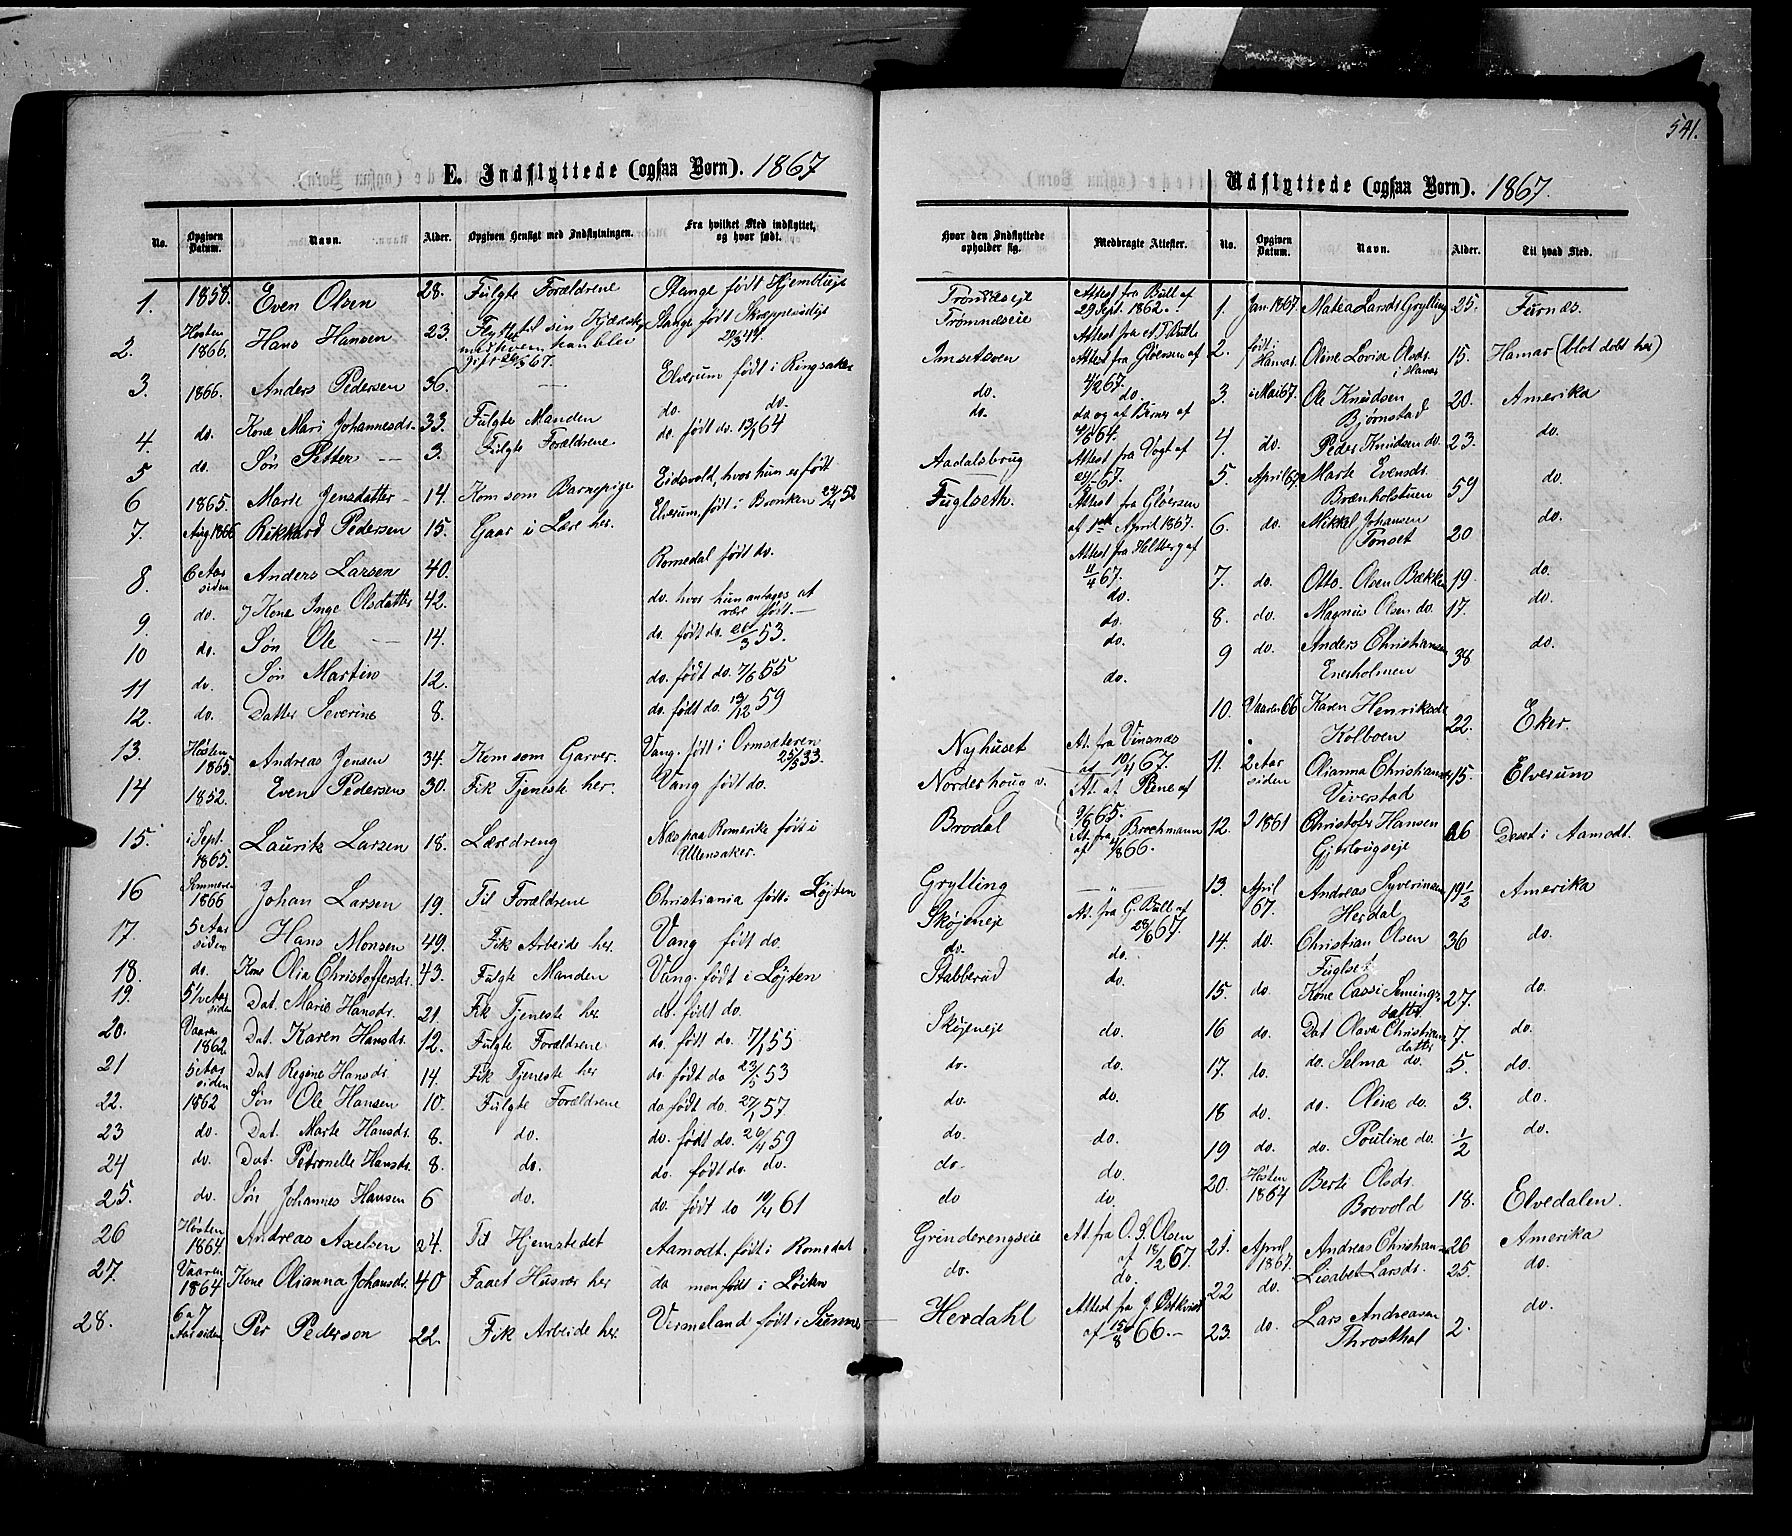 541.
E. Indflyttede (ogsaa Børn). 1867
No. Opgiven Datum. Navn. Alder. Opgiven Hensigt med Indflytningen. Fra hvilket Sted indflyttet, og hvor født. Hvor den Indflyttede opholder sig. Medbragte Attester.
1. 1858. Even Olsen 28. Fulgte Forældrene Stange født Hjemstieje Attest fra Bull af 29 Sept. 1862.
2. Høsten 1866. Hans Hansen 23. Stange født Trømnæseie Attest fra Bull
3. 1866. Anders Pedersen 36. — Elverum født i Ringsaker Imsetsven Attest fra Gløersen af 4/2 67.
4. do. Kone Mari Johannesdr. 33. Fulgte Manden do. do. do. do.
5 do. Søn Petter — 3. Fulgte Forældrene do. født do. 13/1 64 do. do og af Berner af
6 1865. Marte Jensdatter — 14. Kom som Barnepige Eidsvold, hvor hun er født Aadalsbrug Attest fra Vogt af
7. Aug 1866 Rikkard Pedersen 15. Gaar i Lære her. Elverum, født i Bronken 24/4 52 Fuglseth. Attest fra Gløersen af 1ste April 1867.
8. 6 Aar siden Anders Larsen 40. Romedal født do. Attest fra Heltberg af 11/4 67.
9. do. Kone Inge Olsdatter 42. do. hvor hun antages at være født. — do.
10 do. Søn Ole — 14. do. født do. 21/3 53. do.
11 do. Søn Martin 12. do. født do. 7/6 55 do.
12. do. Datter Severine 8. do. født do. 13/12 59
13. Høsten 1865. Andreas Jensen 34. Kom som Garver. Vang. født i Ormsæteren 25/5 33. Nyhuset At. fra Vinsnæs af 10/4 67.
14 1852. Even Pedersen 30. Fik Tjeneste her. Vang født do. Norderhoug v. At. af Rene af 9/6 65.
15. i Sept. 1865. Lauritz Larsen 18. Læredreng Næs paa Romerike født i Ullensaker. Brodal At. fra Brochmann af
16 Sommeren 1866 Johan Larsen 19. Til Forældrene Christiania født i Løjten Grylling — " —
17. 5 Aar siden Hans Monsen 49. Fik Arbeide her. Vang født do. Skøjeneje At. fra G. Bull af 28/6 67.
18. do. Kone Olia Christoffersdr. 43. Fulgte Manden Vang. født i Løjten do. do.
19. 5 1/2 Aar siden Dat. Marie Hansdr. 21. Fik Tjeneste her do. født do. Stabberud do.
20. Vaaren 1862. Dat. Karen Hansdr. 12. Fulgte Forældrene do. født do. 7/1 55 Skøjeneje do.
21 5 Aar siden Dat Regine Hansdr. 14. Fik Tjeneste her do. født do 23/5 53 do. do.
22. 1862 Søn Ole Hansen 10. Fulgte Forældrene do født do. 27/1 57. do. do.
23 do. Dat. Marte Hansdr. 8. do. do. født do. 26/4 59 do. do.
24 do. Dat. Petronelle Hansdr. 8. do. do. født do. do. do. do.
25. do. Søn Johannes Hansen 6 do. do. født do 10/4 61 do do.
26 Høsten 1864. Andreas Axelsen 24. Til Hjemstedet Aamodt. født i Romsdal Grinderengseie At. fra O. S. Olsen af 18/2 67.
27. Vaaren 1864 Kone Olianna Johansdr. 40 Faaet Husvær her do men født i Løiten do. do.
28. 6 a 7 Aar siden Per Pederson 22. Fik Arbeide her. Vermeland født i Sunne Herdahl Attest fra J. Østkvist af 15/8 66. —
Udflyttede (ogsaa Børn). 1867.
No. Opgiven Datum. Navn. Alder. Til hvad Sted.
1. Jan. 1867. Matea Larsdr Grylling 25. Furnæs.
2. født i Hamar. Oline Lovise Olsdr. i Hamar 15. Hamar (blot døbt her)
3. i Mai 67. Ole Knudsen Bjørnstad 20. Amerika
4. do. Peder Knudsen do. 23. do.
5. April 67 Marte Evensdr. Brænholstuen 59 do.
6. do. Mikkel Johansen Tonset 20 do.
7. do. Otto Olsen Bækken 19. do.
8. do. Magnus Olsen do. 17. do.
9 do. Anders Christiansen Enerholmen 38 do.
10. Vaaren 66 Karen Henriksdr. Kolboen 22. Eker.
11. 2 Aar siden Olianna Christiansdr. Veverstad 15. Elverum
12. 1861 Christofer Hansen Gjetlougseje 26 Deset i Aamodt.
13. April 67. Andreas Syverinsen Herdal 19 1/2 Amerika
14. do. Christian Olsen Fuglset 36 do.
15. do. Kone Cassi Semingsdatter 27. do.
16 do. Dat Olava Christiansdatter 7. do.
17. do. do. Selma do. 5. do.
18 do. do. Oline do. 3. do.
19 do. do. Pouline do. 1/2 do.
20. Høsten 1864 Berte Olsdr. Brovold 18. Elvedalen.
21. April 1867. Andreas Christiansen 26 Amerika
22 do. Lisabet Larsdr. 25. do.
23. do. Lars Andreasen Throsthol 2. do.